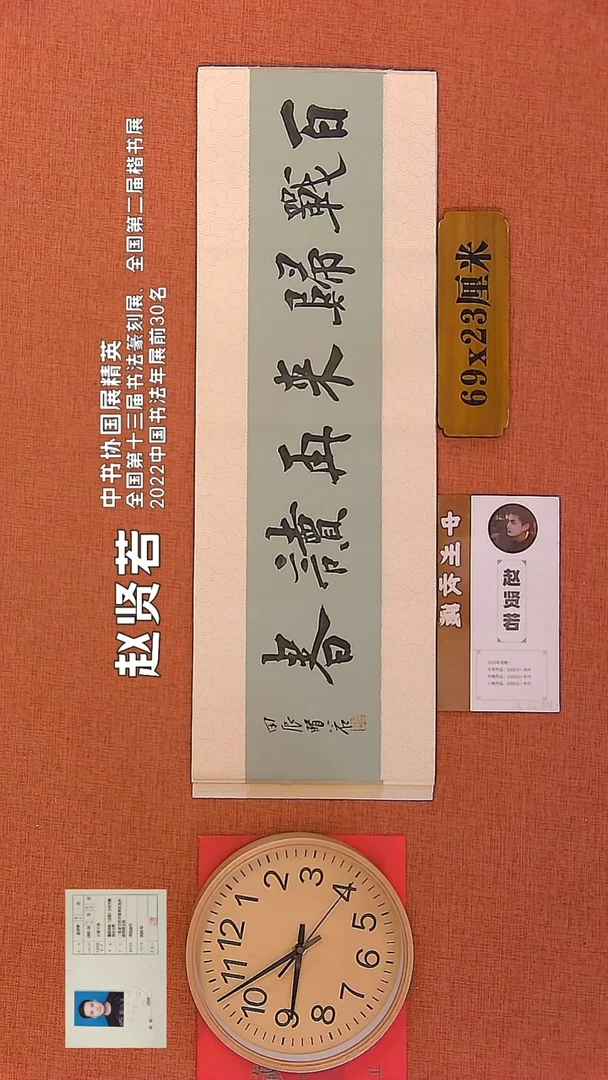 赵贤若
中书协国展精英
全国第十三届书法篆刻展、全国第二届楷书展
2022中国书法年展前30名
百戰歸来再讀書
甲辰賢若
69x23厘米
赵贤若
12
1
2
3
4
5
6
7
8
9
10
11